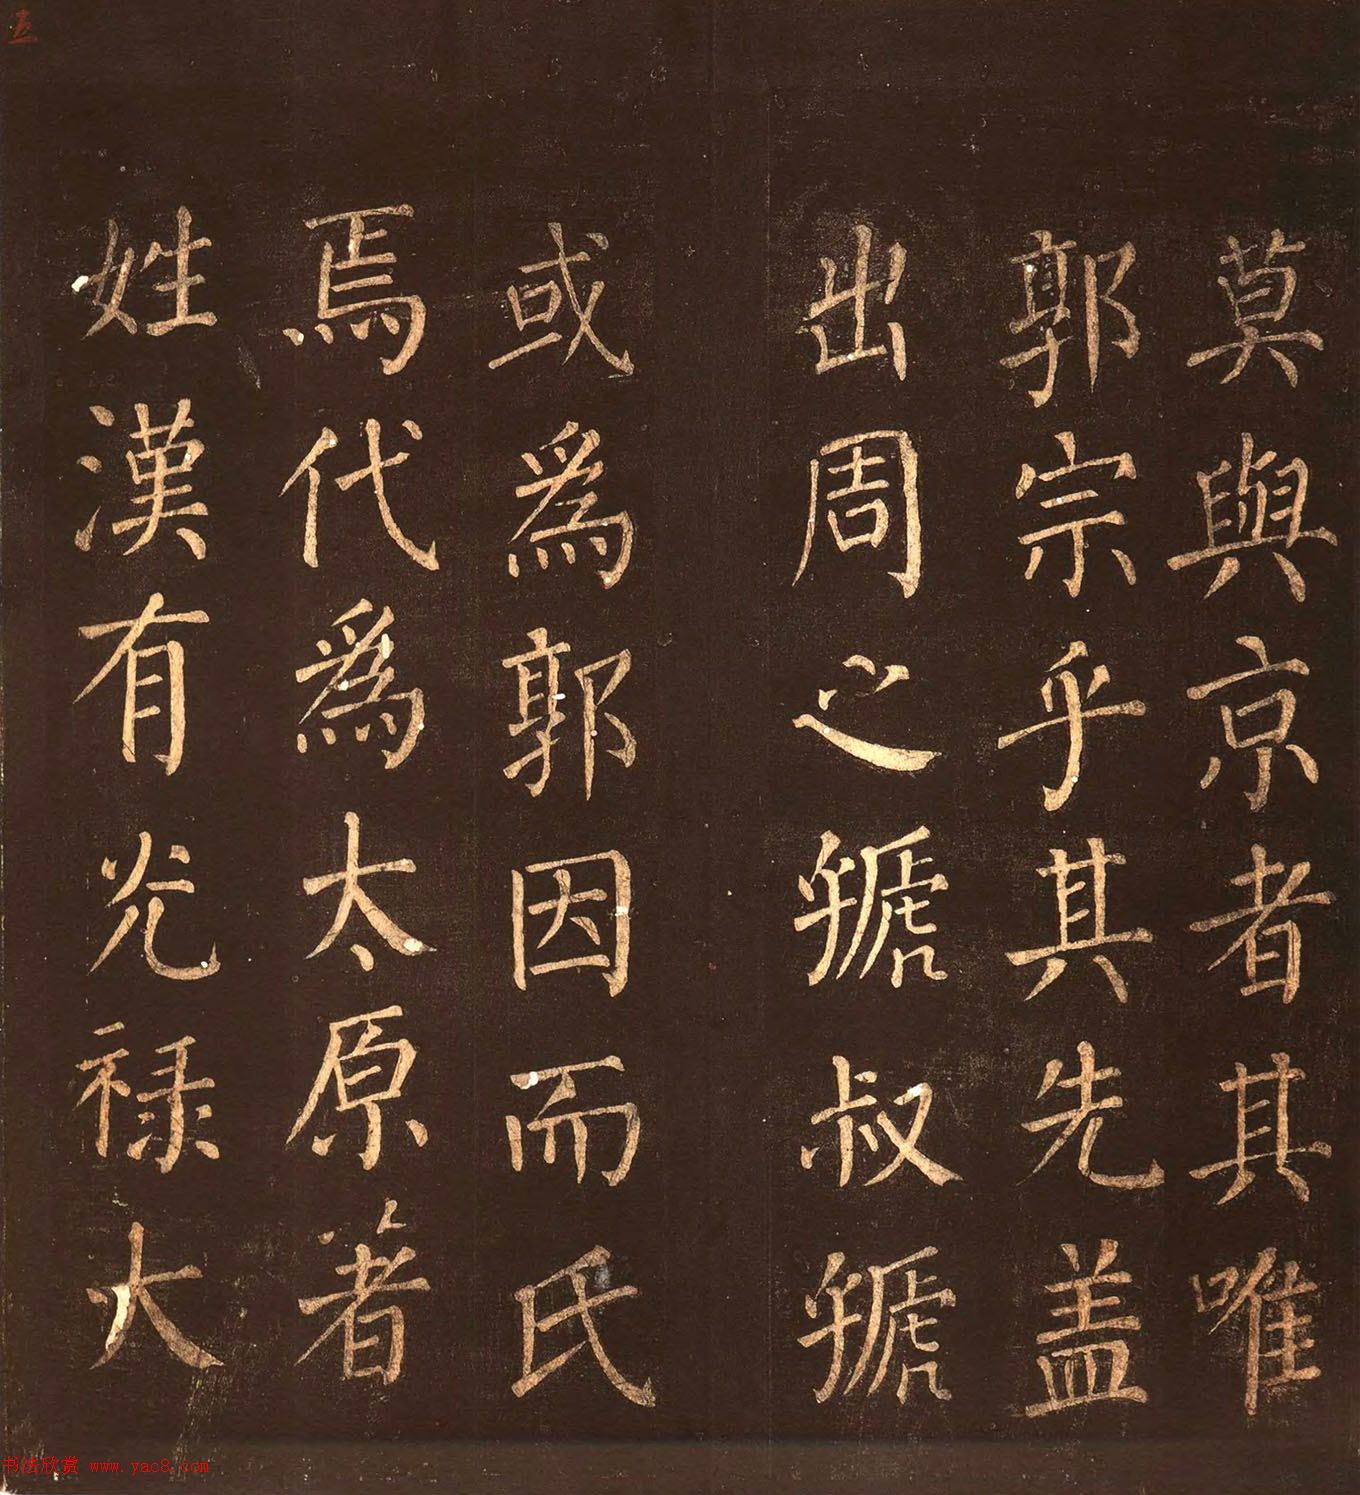 莫與京者其唯
郭宗乎其先盖
出周之虢叔虢
或爲郭因而氏
焉代爲太原著
姓漢有光禄大
书法欣赏 www.yac8.com